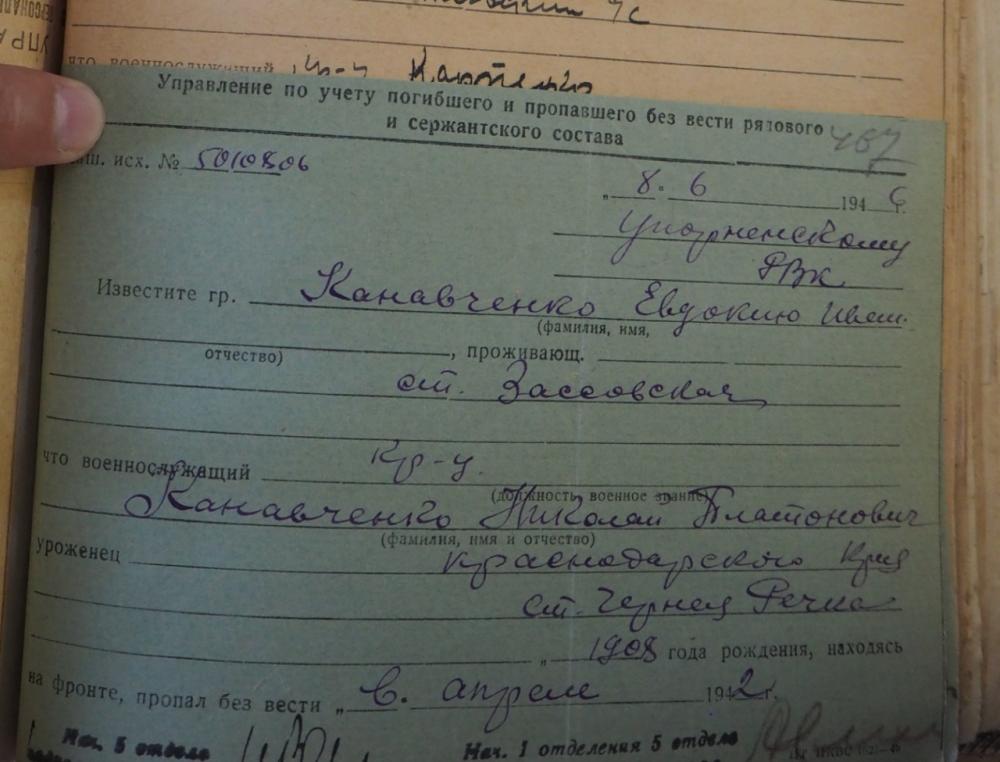 что военнослужащий
Управление по учету погибшего и пропавшего без вести рядового
и сержантского состава
467
исх. № 5010806
„ 8. 6 1946 г.
Упорненскому
РВК
Известите гр. Канавченко Евдокию Иван.
(фамилия, имя,
отчество) , проживающ.
ст. Зассовская
что военнослужащий кр-ц.
(должность военное звание)
Канавченко Николай Платонович
(фамилия, имя и отчество)
уроженец Краснодарского Края
ст. Черная Речка
„ 1908 года рождения, находясь
на фронте, пропал без вести „ в. апреле 1942 г.
Нач. 5 отдела Нач. 1 отделения 5 отдела